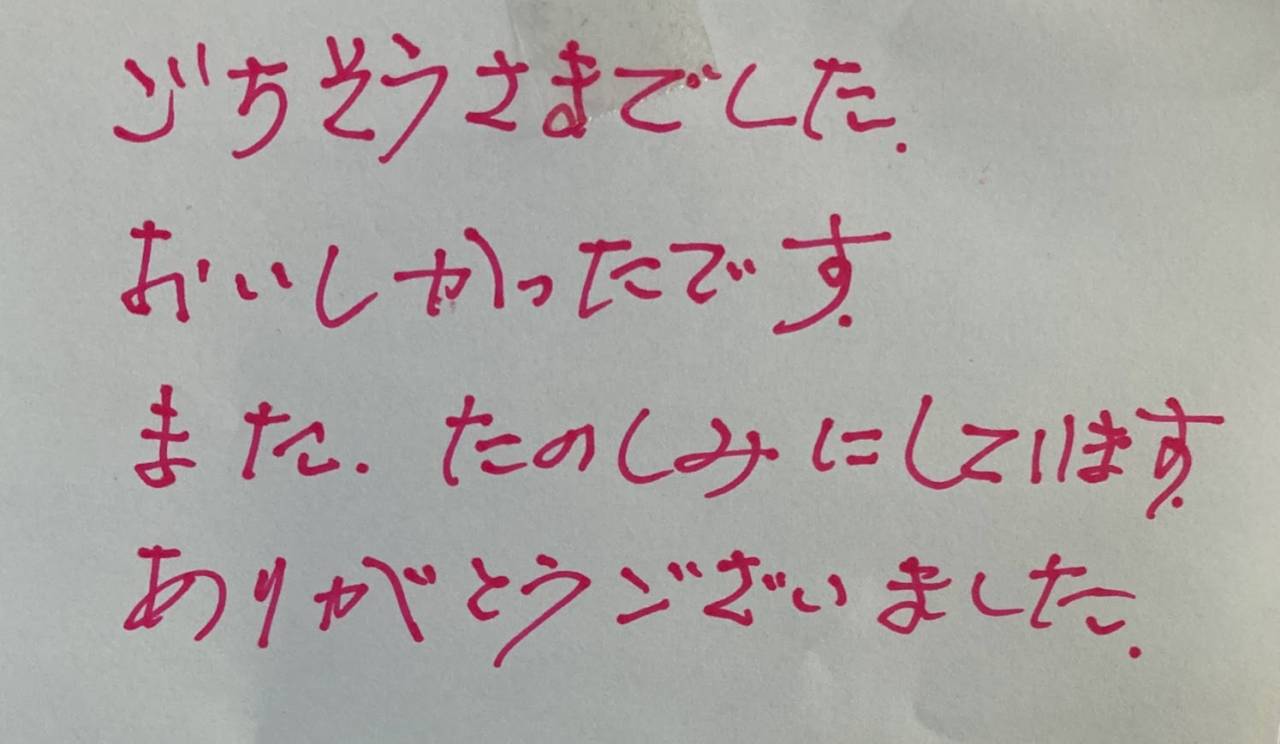 ごちそうさまでした.
おいしかったです.
また.たのしみにしています.
ありがとうございました.